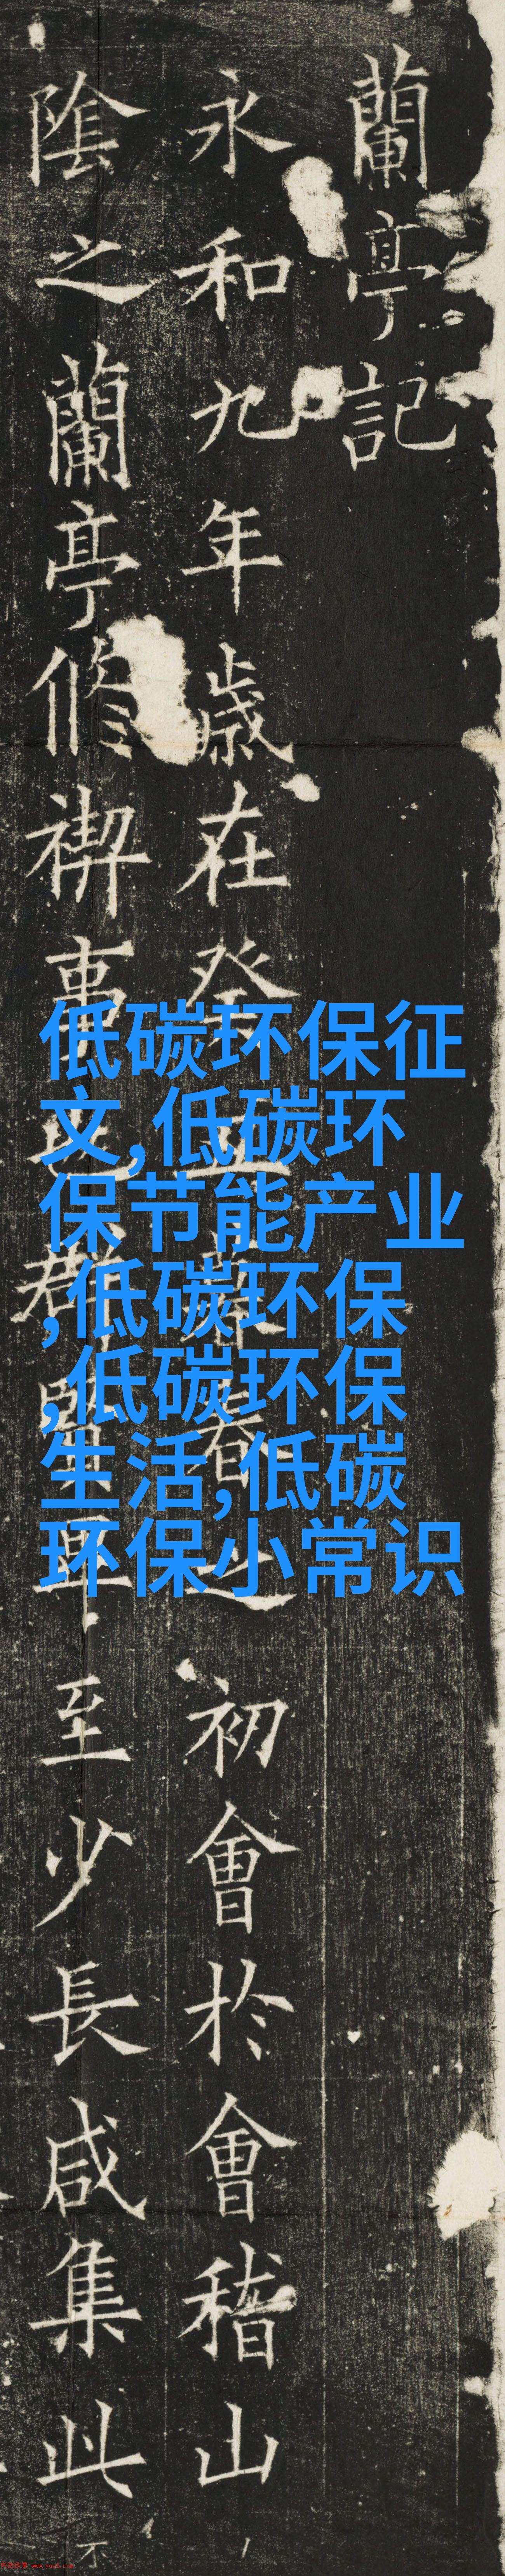 蘭亭記
永和九年歲在癸丑暮春之初會於會稽山
陰之蘭亭脩禊事也群賢畢至少長咸集此
低碳环保征
文,低碳环
保节能产业
,低碳环保
,低碳环保
生活,低碳
环保小常识